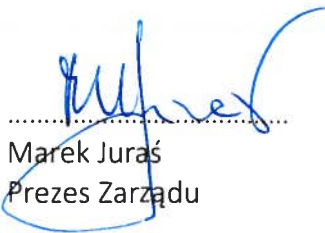 Marek Juraś
Prezes Zarządu